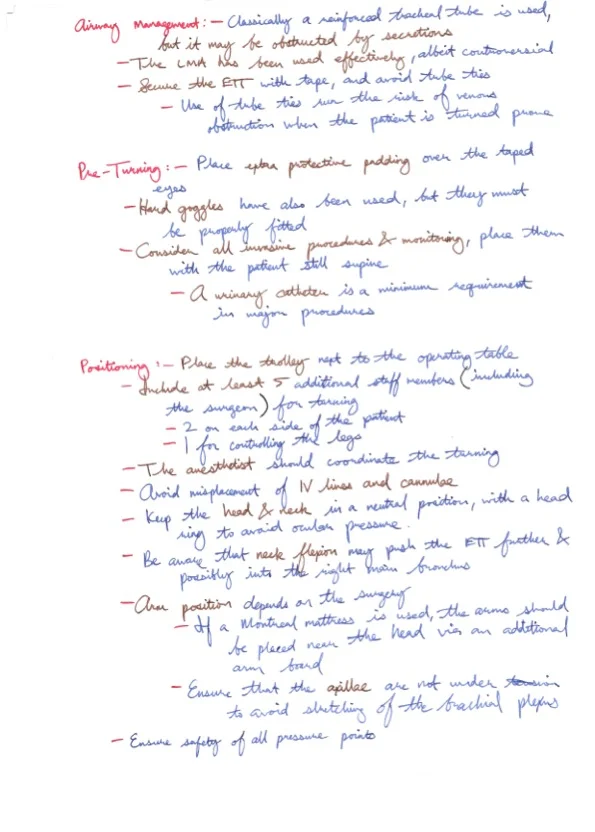 Airway Management: - Classically a reinforced tracheal tube is used,
but it may be obstructed by secretions
- The LMA has been used effectively, albeit controversial
- Secure the ETT with tape, and avoid tube ties
- Use of tube ties run the risk of venous
obstruction when the patient is turned prone
Pre-Turning: - Place extra protective padding over the taped
eyes
- Hard goggles have also been used, but they must
be properly fitted
- Consider all invasive procedures & monitoring, place them
with the patient still supine
- A urinary catheter is a minimum requirement
in major procedures
Positioning: - Place the trolley next to the operating table
- Include at least 5 additional staff members (including
the surgeon) for turning
- 2 on each side of the patient
- 1 for controlling the legs
- The anesthetist should coordinate the turning
- Avoid misplacement of IV lines and cannulae
- Keep the head & neck in a neutral position, with a head
ring to avoid ocular pressure.
- Be aware that neck flexion may push the ETT further &
possibly into the right main bronchus
- Arm position depends on the surgery
- If a Montreal mattress is used, the arms should
be placed near the head via an additional
arm board
- Ensure that the axillae are not under tension
to avoid stretching of the brachial plexus
- Ensure safety of all pressure points